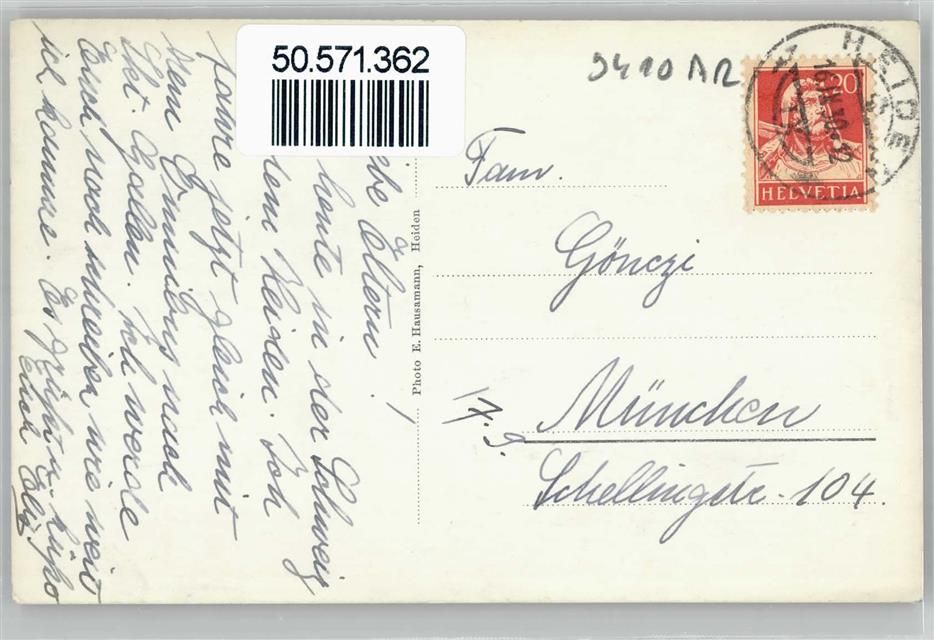 50.571.362
9410 AR
HEIDEN
20
HELVETIA
Fam.
Gönczi
München
Schellingstr. 104.
17.9.
Photo E. Hausamann, Heiden
Eltern!
heute in der Schweiz
dem Heiden. Ich
fahre jetzt gleich mit
dem Omnibus nach
Skt. Gallen. Ich werde
Euch noch schreiben wie weit
ich komme. Es grüßt u. küßt
euch